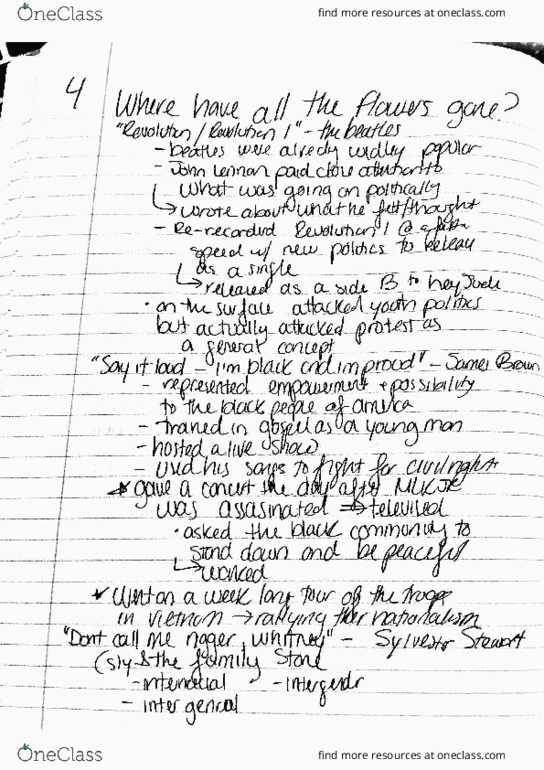 OneClass
find more resources at oneclass.com
4
Where have all the flowers gone?
"Revolution / Revolution 1" - the beatles
- beatles were already widley popular
- John Lennon paid close attention to
what was going on politically
wrote about what he felt/thought
- Re-recorded Revolution 1 @ a
speed w/ new politics to release
as a single
released as a side B to hey Jude
• on the surface attacked youth politics
but actually attacked protest as
a general concept
"Say it loud - I'm black and im proud" - James Brown
- represented empowerment + possibility
to the black people of america
- trained in gospel as a young man
- hosted a live show
- used his songs to fight for civil rights
gave a concert the day after MLK JR
was assasinated → televised
• asked the black community to
stand down and be peaceful
worked
went on a week long tour of the troops
in vietnam → rallying their nationalism
"Dont call me nigger, whitney" - Sylvester Stewart
(sly & the family Stone
- interracial - intergendr
- inter
OneClass
find more resources at oneclass.com